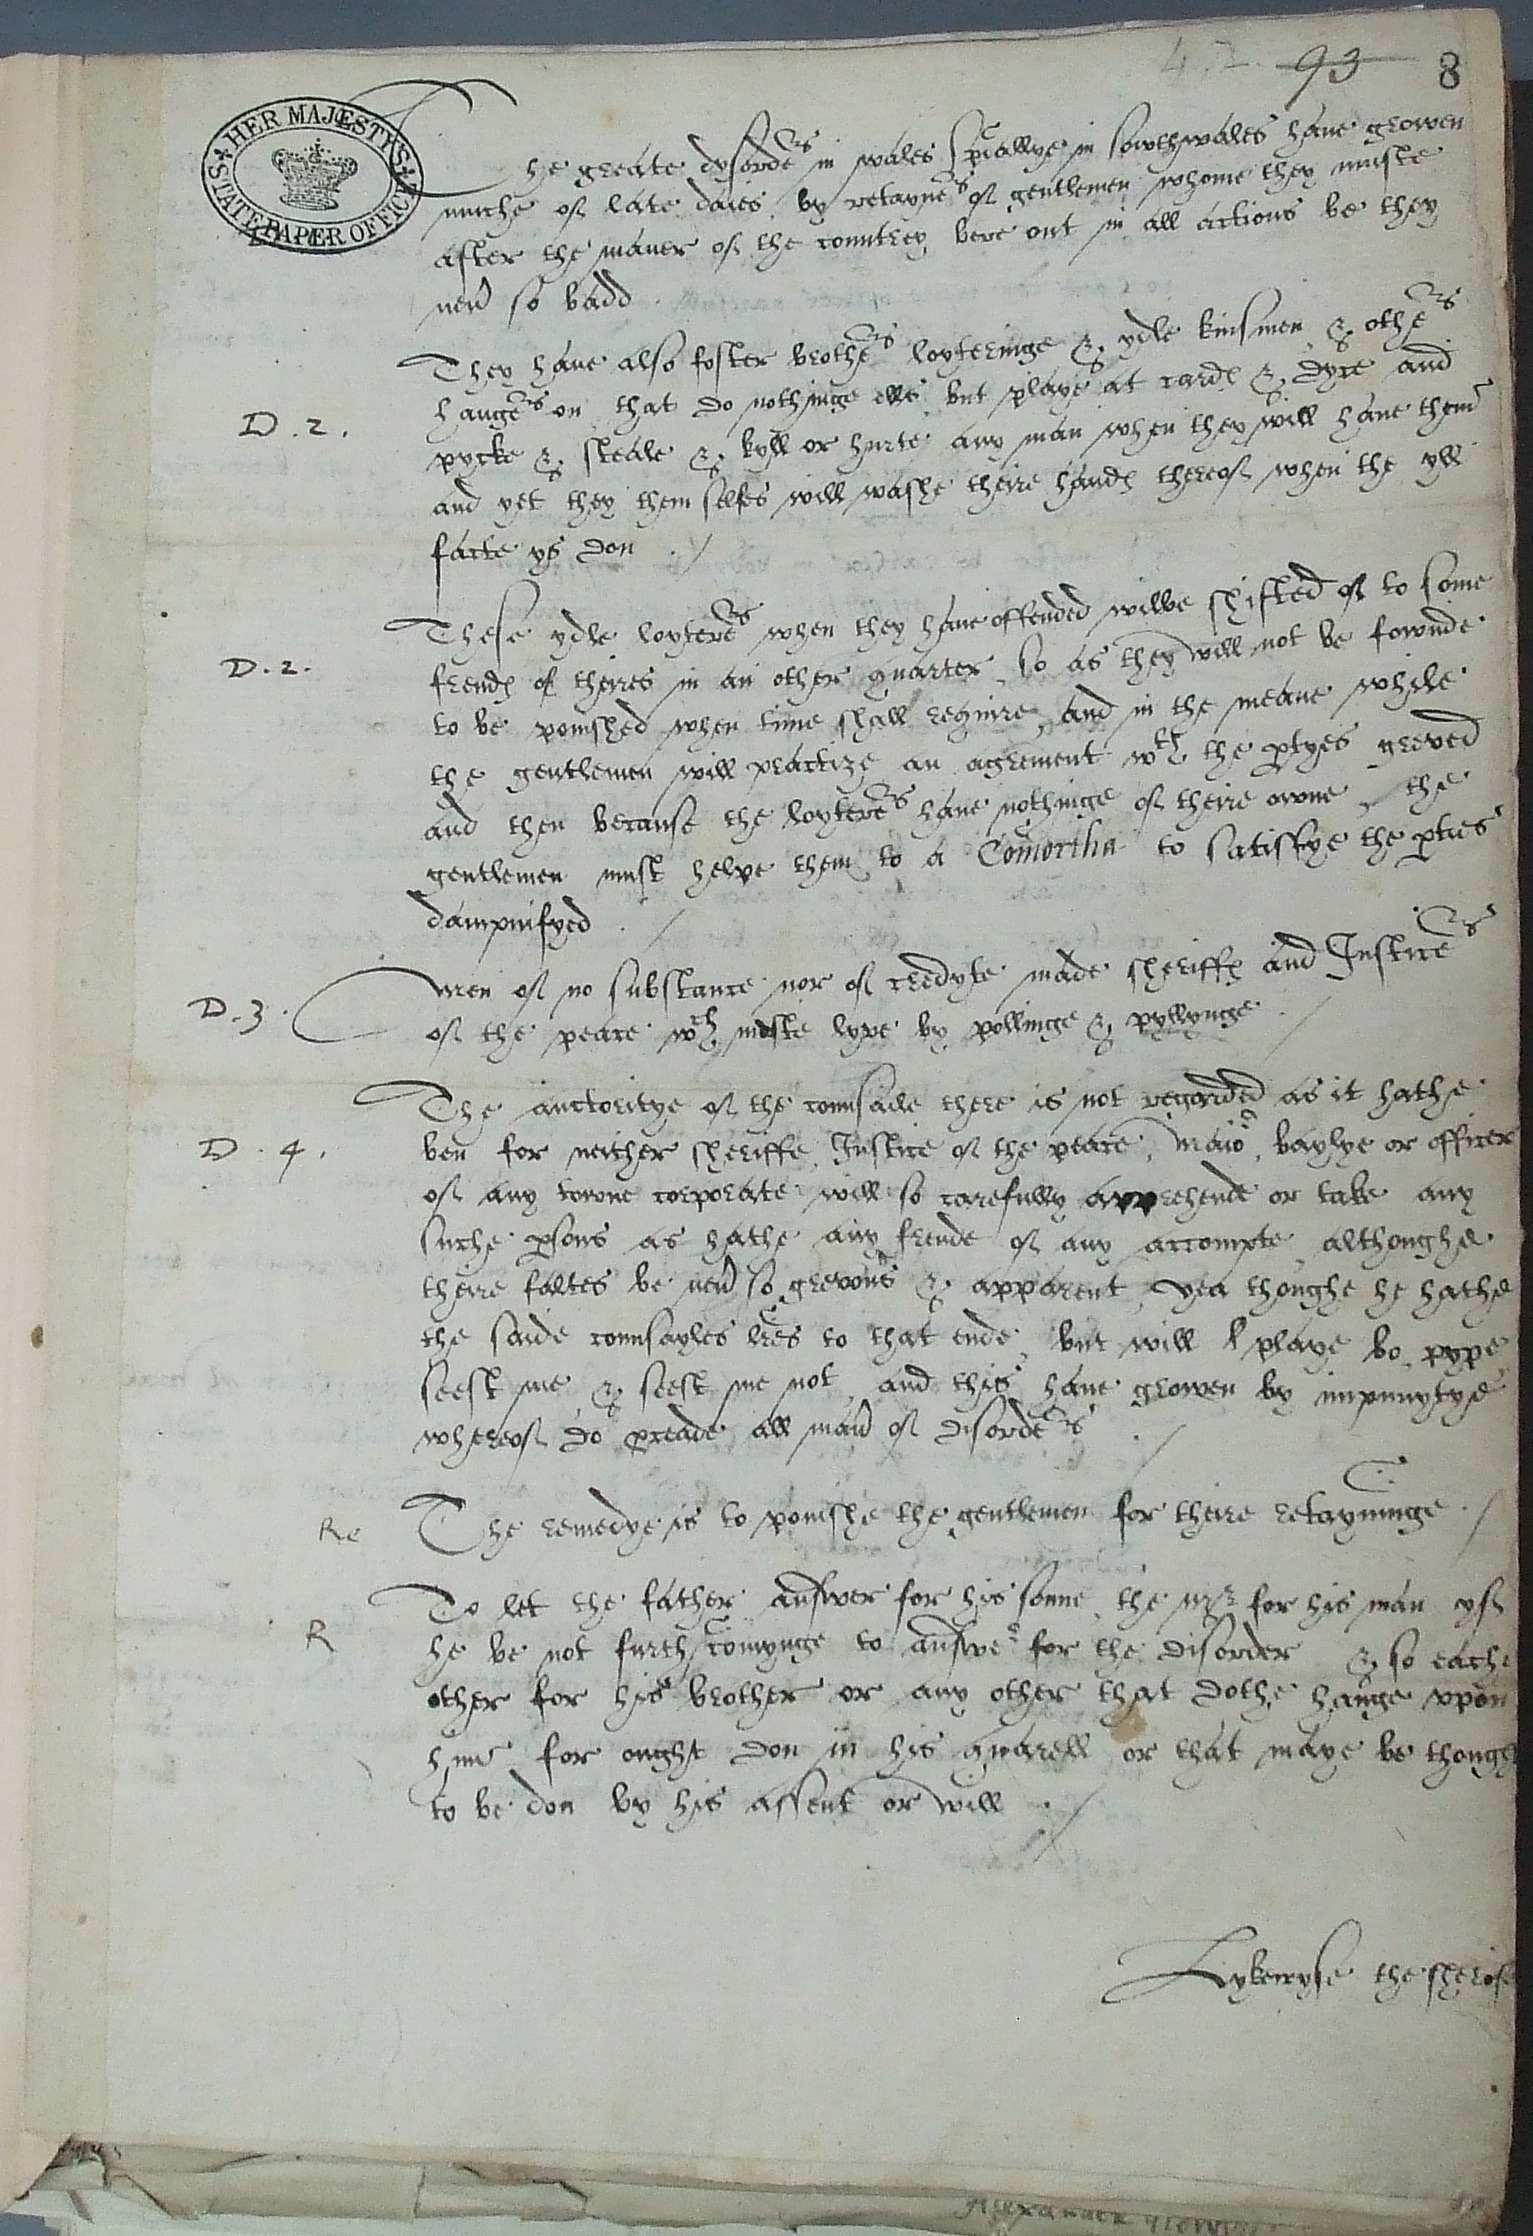 4.7. 93 8
HER MAJESTY'S STATE PAPER OFFICE
The greate dysorders in wales spciallye in sowthwales haue growen
muche of late daies by retayners of gentlemen whome they muste
after the maner of the countrey bere out in all actions be they
neuer so badd .
They haue also foster brothers loyteringe & ydle kinsmen & others
hangers on that do nothinge ells but playe at cardes & dyce and
D . 2 .
pycke & steale & kyll or hurte any man when they will haue them
and yet they them selfes will washe theire handes thereof when the yll
facte ys don . /
These ydle loyterers when they haue offended wilbe shifted of to some
D . 2 .
frendes of theires in an other quarter so as they will not be fownde
to be ponished when time shall require, and in the meane while
the gentlemen will practize an agrement wth the ptyes greved
and then because the loyterers haue nothinge of theire owne, the
gentlemen must helpe them to a Comortha to satisfye the pties
dampnifyed . /
men of no substance nor of credyte made sheriffes and Justices
D . 3 .
of the peace wch muste lyve by pollinge & pyllynge . /
The auctoritye of the counsaile there is not regarded as it hathe
D . 4 .
ben for neither sheriffe, Justice of the peace, maior, baylye or officer
of any towne corporate will so carefully apprehende or take any
suche psons as hathe any frende of any accompte althoughe
theire faltes be neuer so grevous & apparent, yea thoughe he hathe
the saide counsayles lres to that ende, but will playe bo pype
seest me & seest me not, and this haue growen by impunytye
whereof do preade all maner of disorders . /
Re
The remedye is to ponishe the gentlemen for theire retayninge . /
To let the father answer for his sonne, the mr for his man yf
R
he be not furth comynge to answer for the disorder & so eache
other for his brother or any other that dothe hange vpon
him for ought don in his quarell or that maye be though
to be don by his assent or will . /
Lykewyse the sherife